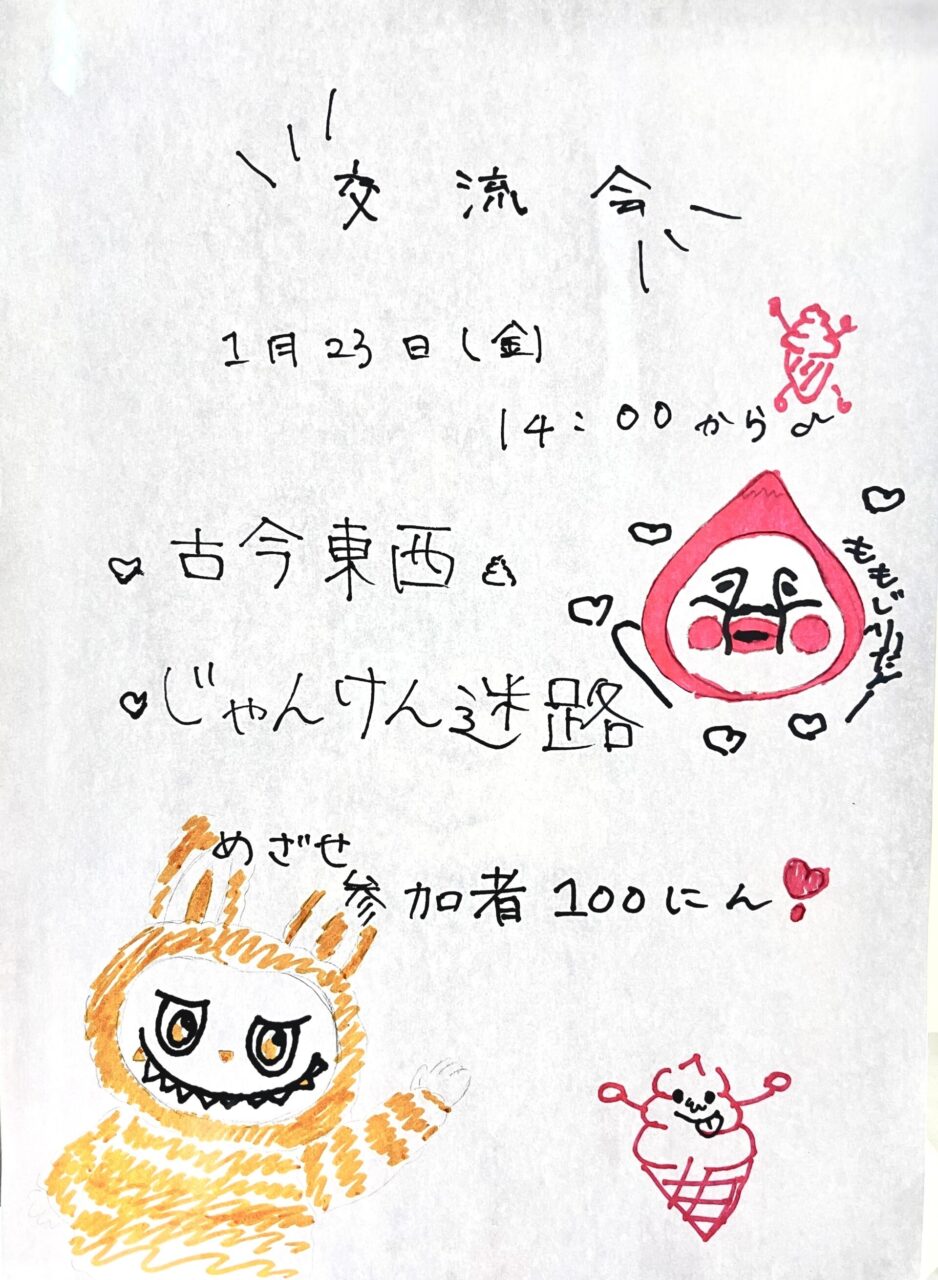 交流会
1月23日(金)
14:00から♪
♡古今東西
♡じゃんけん迷路
ももじりだー
めざせ
参加者100にん❣